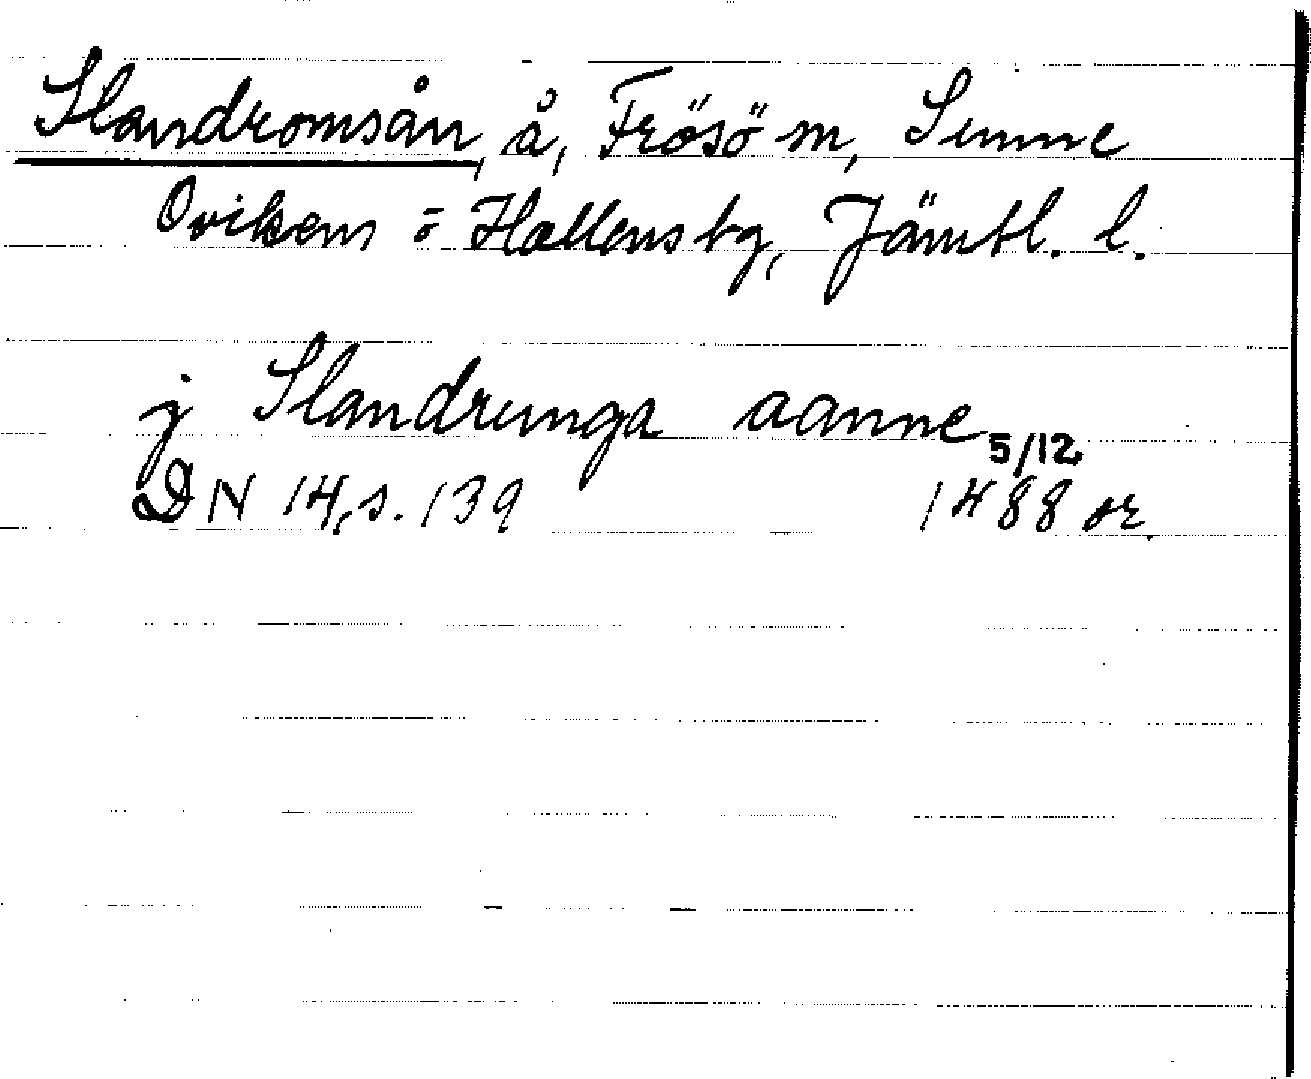 Slandromsån, å, Frösö sn, Sunne
Ovikens o Hallens tg, Jämtl. l.
j Slandrunga aanne
5/12
DN 14, s. 139 1488 or.